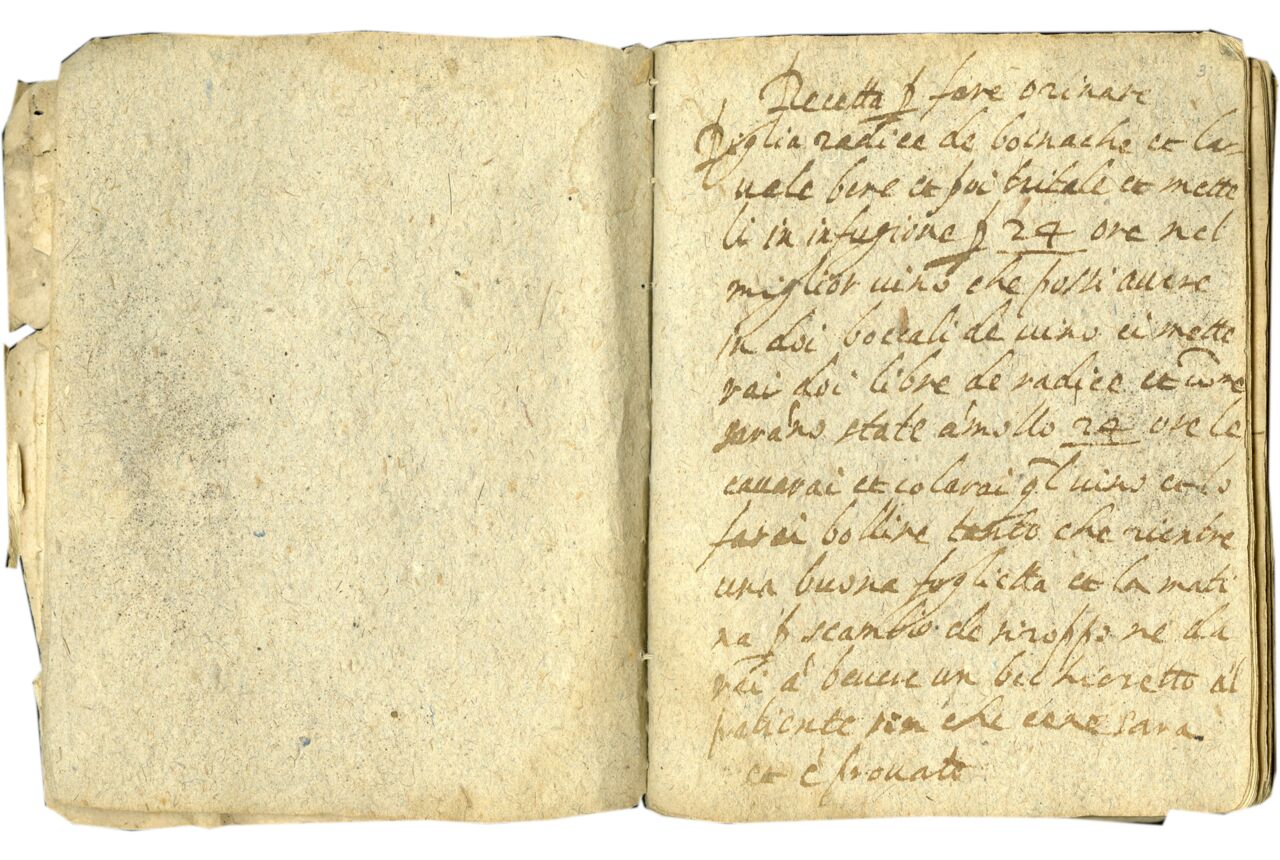 3
Recetta p fare orinare
Piglia radice de boenache et la-
uale bene et poi tritale et mette
li in infusione p 24 ore nel
miglior uino che possi auere
in doi boccali de uino ci mette
rai doi libre de radice et come
sarano state àmollo 24 ore le
cauarai et colarai ql uino et lo
farai bollire tanto che rientre
una buona foglietta et la mati
na p scambio de siroppo ne da
rai à beuere un bichieretto al
patiente sin che cene sara
et è prouato